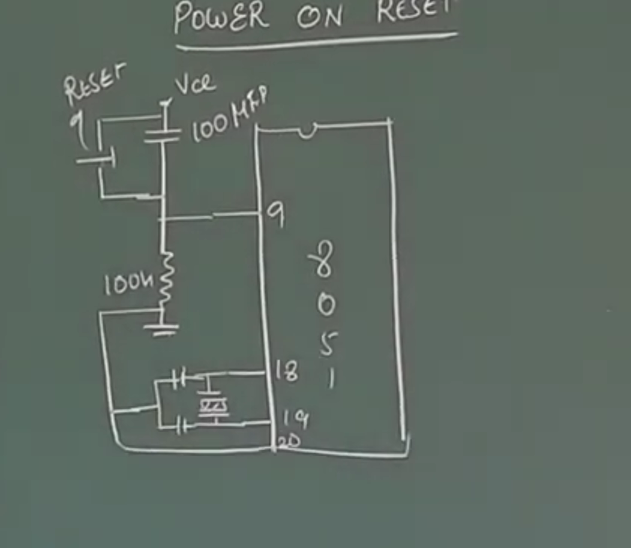 POWER ON RESET
RESET
Vcc
100 MFD
9
8
0
5
1
18
19
20